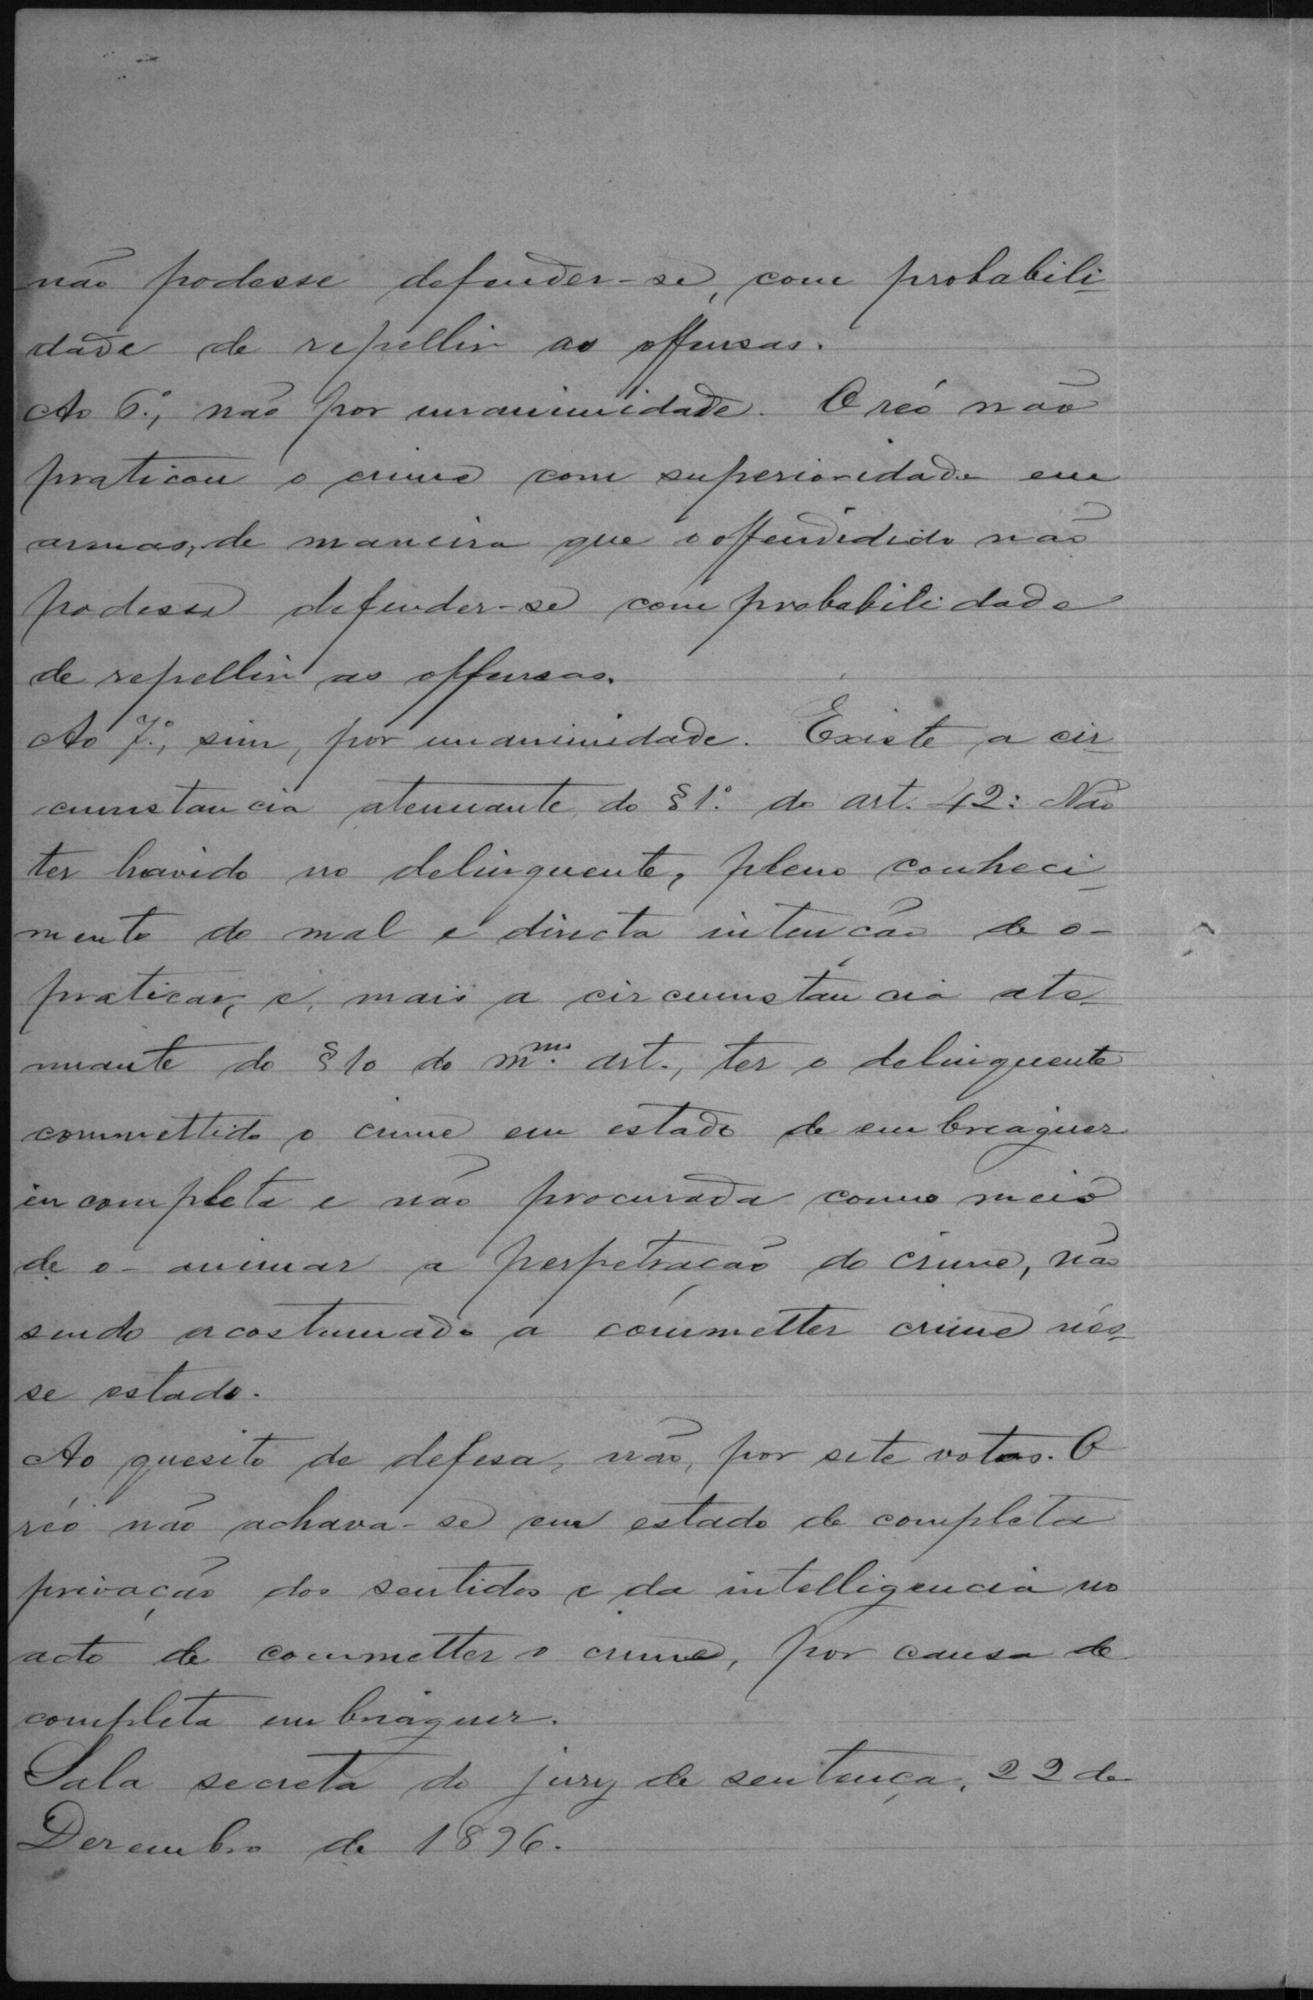 não podesse defender-se, com probabili-
dade de repellir as offensas.
Ao 6.º, não por unanimidade. O réo não
praticou o crime com superioridade em
armas, de maneira que o offendidido não
podesse defender-se com probabilidade
de repellir as offensas.
Ao 7.º, sim, por unanimidade. Existe a cir-
cumstancia atenuante do § 1.º do art. 42: Não
ter havido no delinquente, pleno conheci-
mento do mal e directa intenção de o-
praticar, e, mais a circumstancia ate-
nuante do § 10 do m.mo art., ter o delinquente
commettido o crime em estado de embreaguez
incompleta e não procurada como meio
de o- animar a perpetração do crime, não
sendo acostumado a commetter crime nes-
se estado.
Ao quesito de defesa, não, por sete votos. O
réo não achava-se em estado de completa
privação dos sentidos e da intelligencia no
acto de commetter o crime, por causa de
completa embriaguez.
Sala secreta do jury de sentença, 22 de
Dezembro de 1896.